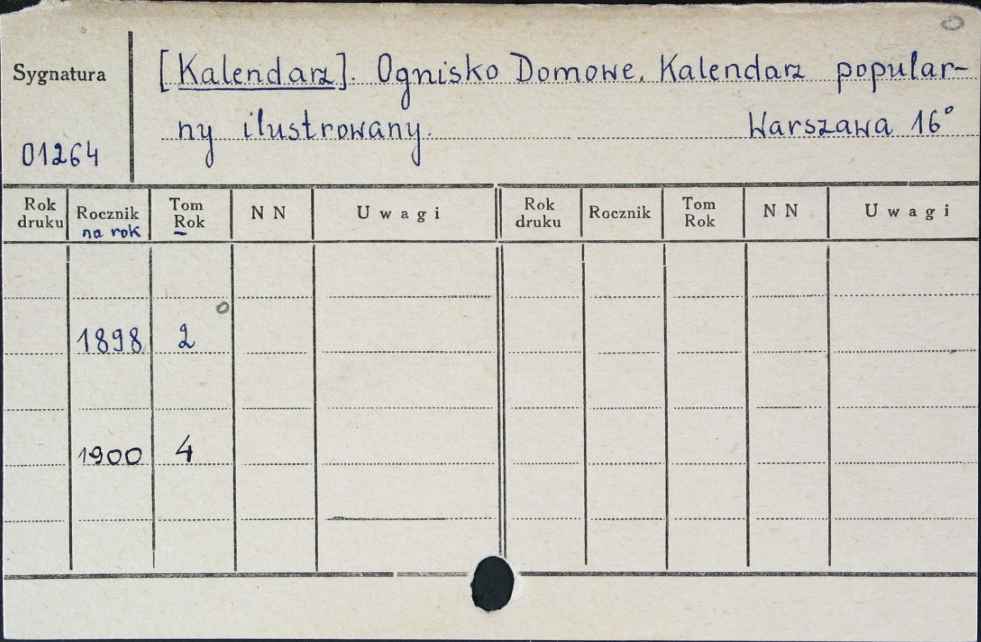 Sygnatura
[Kalendarz]. Ognisko Domowe. Kalendarz popular-
ny ilustrowany. Warszawa 16°
01264
Rok druku Rocznik na rok Tom Rok N N Uwagi Rok druku Rocznik Tom Rok N N Uwagi
1898 2
1900 4